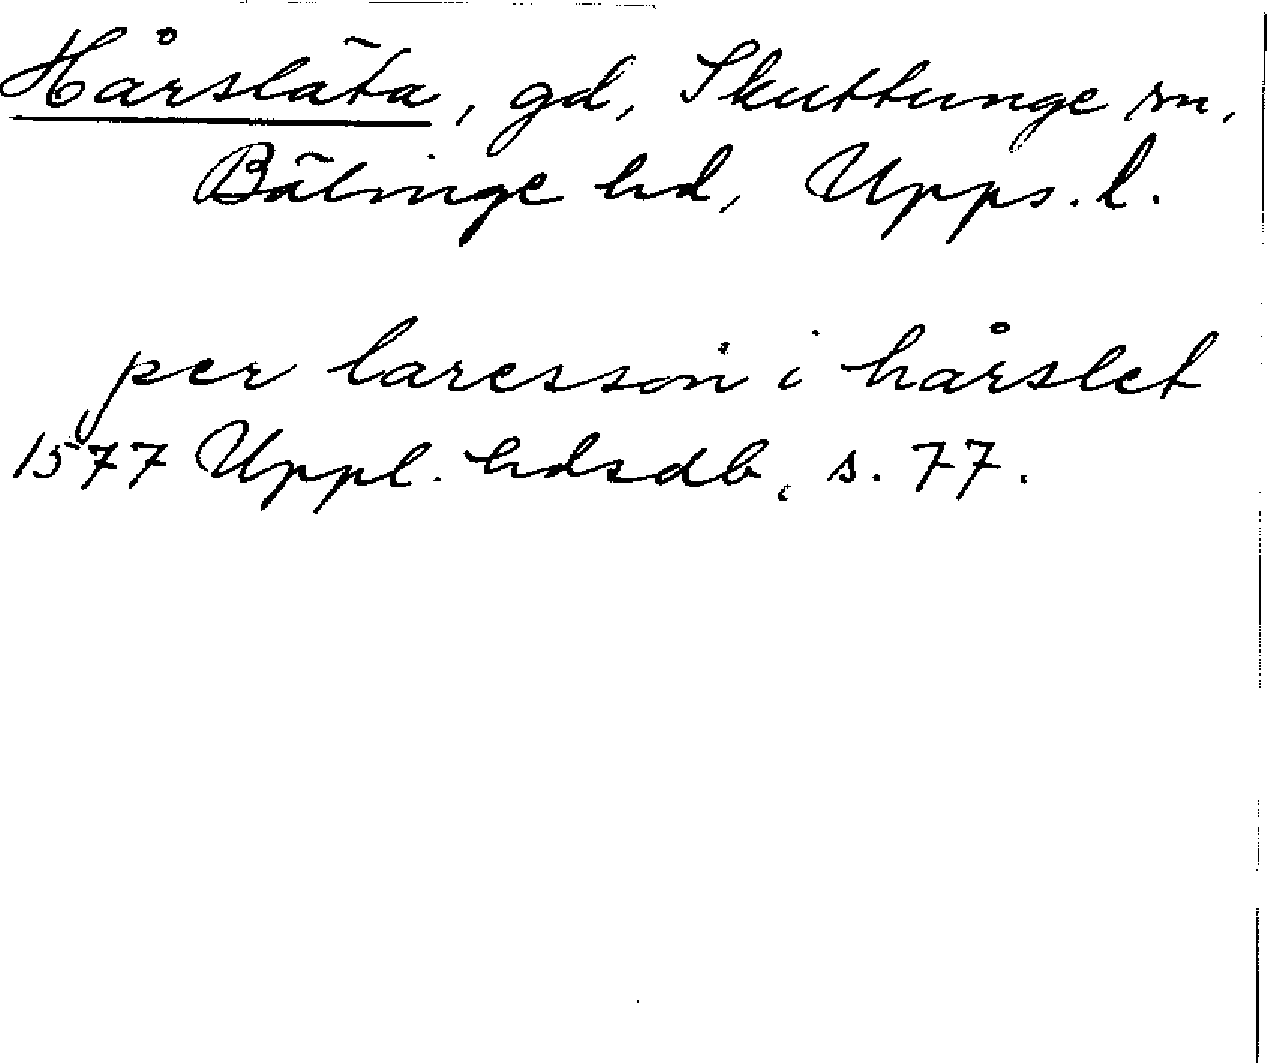 Hårsläta, gd, Skuttunge sn,
Bälinge hd, Upps. l.
per laresson i hårslet
1577 Uppl. hdsdb, s. 77.